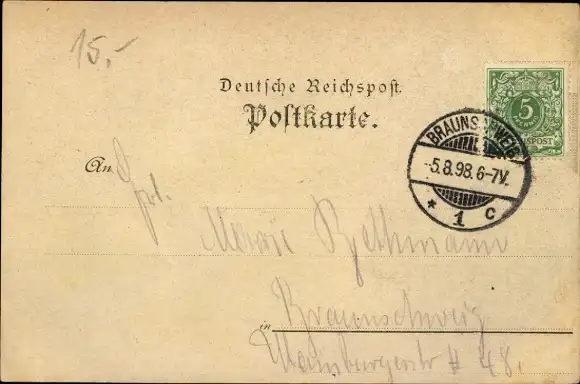 15,-
Deutsche Reichspost.
Postkarte.
5
BRAUNSCHWEIG
-5.8.98.6-7V.
* 1 c
An
Frl.
Marie Bethmann
in Braunschweig
48.